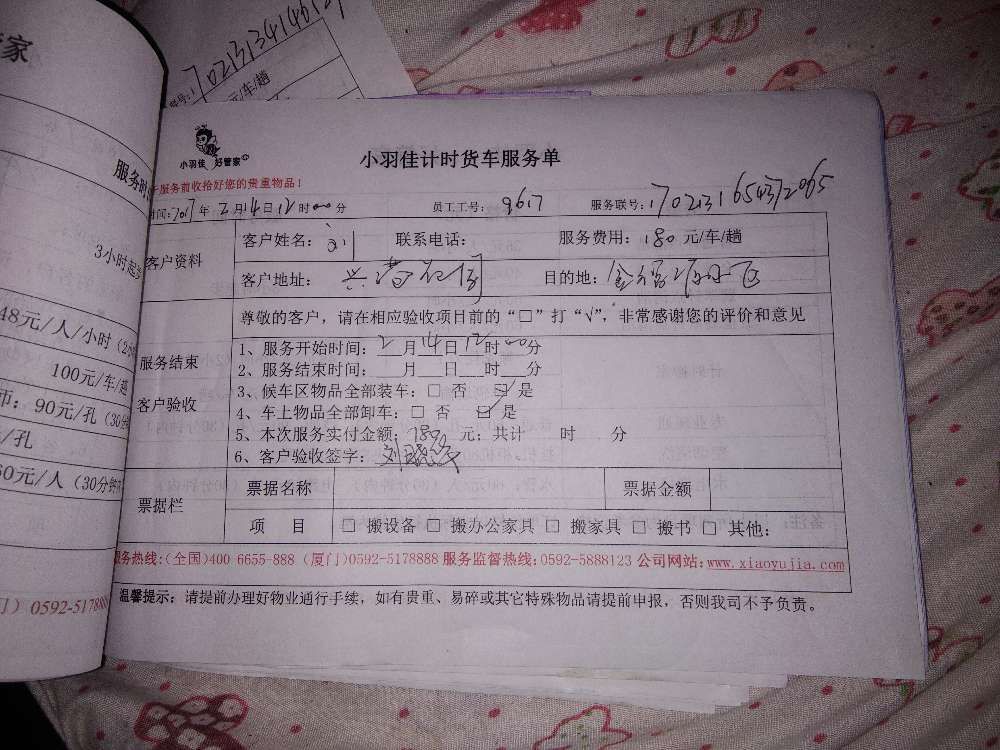 家
服务时
3小时起
48元/人/小时（2小
100元/车/趟
币：90元/孔（30分
元/孔
60元/人（30分钟
门）0592-517888
元/车/趟
小羽佳 好管家
小羽佳计时货车服务单
服务前收拾好您的贵重物品！
时间：2017年2月14日12时00分 员工工号：9617 服务联号：1702131654372065
客户资料
客户姓名：刘 联系电话： 服务费用：180元/车/趟
客户地址： 目的地：
尊敬的客户，请在相应验收项目前的“□”打“√”，非常感谢您的评价和意见
服务结束
客户验收
1、服务开始时间：2月14日12时00分
2、服务结束时间： 月 日 时 分
3、候车区物品全部装车：□ 否 ☑ 是
4、车上物品全部卸车：□ 否 ☑ 是
5、本次服务实付金额：180元；共计 时 分
6、客户验收签字：
票据栏
票据名称 票据金额
项 目 □ 搬设备 □ 搬办公家具 □ 搬家具 □ 搬书 □ 其他：
服务热线：(全国)400-6655-888 (厦门)0592-5178888 服务监督热线：0592-5888123 公司网站：www.xiaoyujia.com
温馨提示：请提前办理好物业通行手续，如有贵重、易碎或其它特殊物品请提前申报，否则我司不予负责。